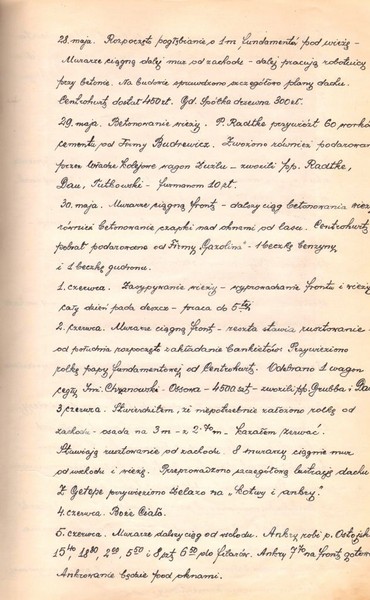 28. maja. Rozpoczęto pogłębianie o 1 m fundamentów pod wieżę -
Murarze ciągną dalej mur od zachodu - dalej pracują robotnicy
przy betonie. Na budowie sprawdzono szczegółowo plany dachu.
Centrohurt dostał 450 zł. Gd. Spółka drzewna 300 zł.
29. maja. Betonowanie wieży. P. Radtke przywiózł 60 worków
cementu od Firmy Budrewicz. Zwożono również podarowany
przez Władze kolejowe wagon żużlu - zwozili pp. Radtke,
Dau, Tutkowski - furmanom 10 zł.
30. maja. Murarze ciągną front - dalszy ciąg betonowania wieży
również betonowanie czapki nad oknami od lasu. Centrohurt
pobrał podarowane od Firmy "Karolina" - 1 beczkę benzyny
i 1 beczkę gudronu.
1. czerwca. Zasypywanie wieży - wyprowadzanie frontu i wieży
cały dzień pada deszcz - praca do 5tej.
2. czerwca. Murarze ciągną front - reszta stawia rusztowanie -
od południa rozpoczęto zakładanie bankietów. Przywieziono
rolkę papy fundamentowej od Centrohurt. Odebrano 1 wagon
cegły Inż. Chrzanowski - Ossowa - 4500 szt - zwozili pp. Grubba i Dau
3. czerwca. Stwierdziłem, że niepotrzebnie założono rolkę od
zachodu - osada na 3 m - z 2.70 m - Kazałem zerwać.
Stawiają rusztowanie od zachodu. 8 murarzy ciągnie mur
od wschodu i wieżę. Przeprowadzono szczegółową lustrację dachu
Z Getepe przywieziono żelazo na „kotwy i ankry."
4. czerwca. Boże Ciało.
5. czerwca. Murarze dalszy ciąg od wschodu. Ankry robi p.
i 8 szt 6 50 do filarów. Ankry na front gotowe
Ankrowanie będzie pod oknami.